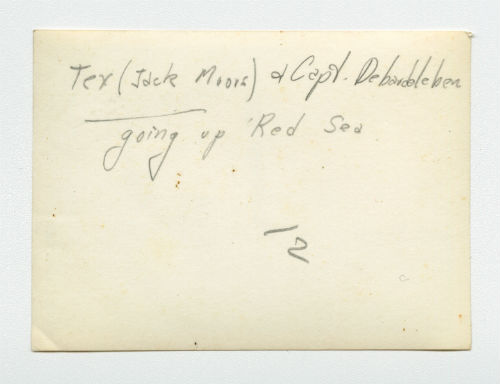 Tex (Jack Moore) & Capt. Debardeleben
going up Red Sea